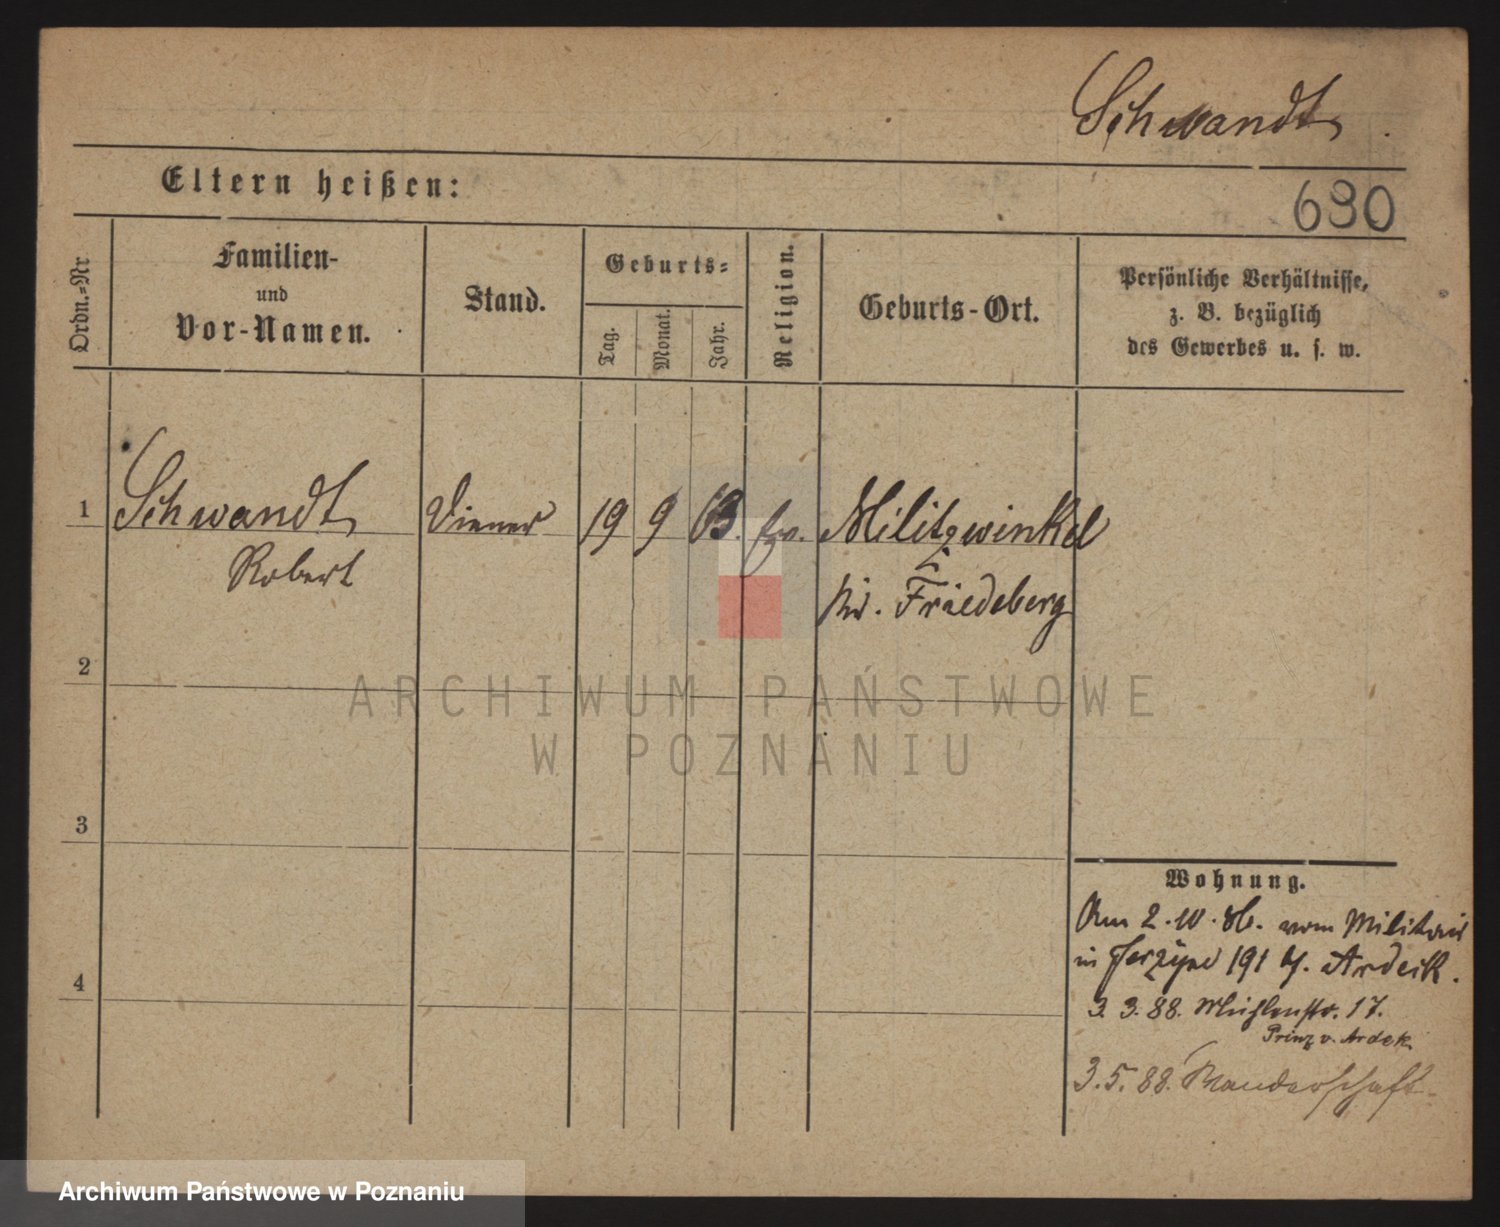 Schwandt
Eltern heißen:
690
Ordn.=Nr
Familien-
und
Vor-Namen.
Stand.
Geburts=
Tag.
Monat.
Jahr.
Religion.
Geburts-Ort.
Persönliche Verhältnisse,
z. B. bezüglich
des Gewerbes u. s. w.
1 Schwandt Diener 19 9 63. ev. Militzwinkel
Robert Kr. Friedeberg
2
ARCHIWUM PAŃSTWOWE
W POZNANIU
3
Wohnung.
Am 2.10.86. vom Militair
in Jerzyce 191 b. Ardeik.
4
3. 3. 88. Mühlenstr. 17.
Prinz v. Ardek.
3. 5. 88. Wanderschaft
Archiwum Państwowe w Poznaniu